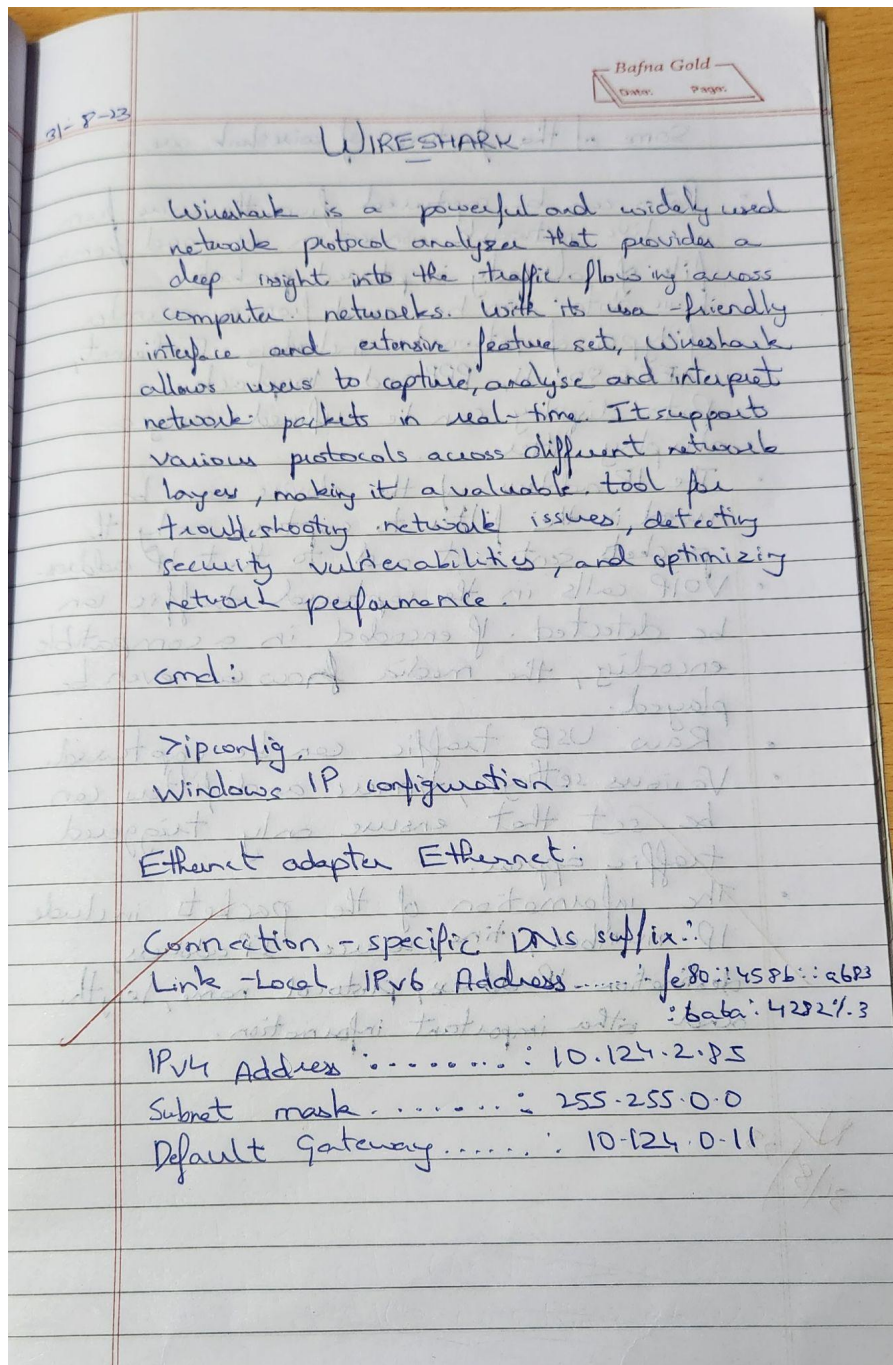 Bafna Gold
Date: Page:
31-8-23
WIRESHARK
Wireshark is a powerful and widely used
network protocol analyzer that provides a
deep insight into the traffic flowing across
computer networks. With its user-friendly
interface and extensive feature set, Wireshark
allows users to capture, analyse and interpret
network packets in real-time. It supports
various protocols across different network
layers, making it a valuable tool for
troubleshooting network issues, detecting
security vulnerabilities, and optimizing
network performance.
cmd:
>ipconfig.
Windows IP configuration.
Ethernet adapter Ethernet:
Connection - specific DNS suffix:
Link -Local IPv6 Address ...... fe80::458b::a683
:baba:4282%.3
IPv4 Address :........: 10.124.2.85
Subnet mask .......: 255.255.0.0
Default Gateway ......: 10.124.0.11